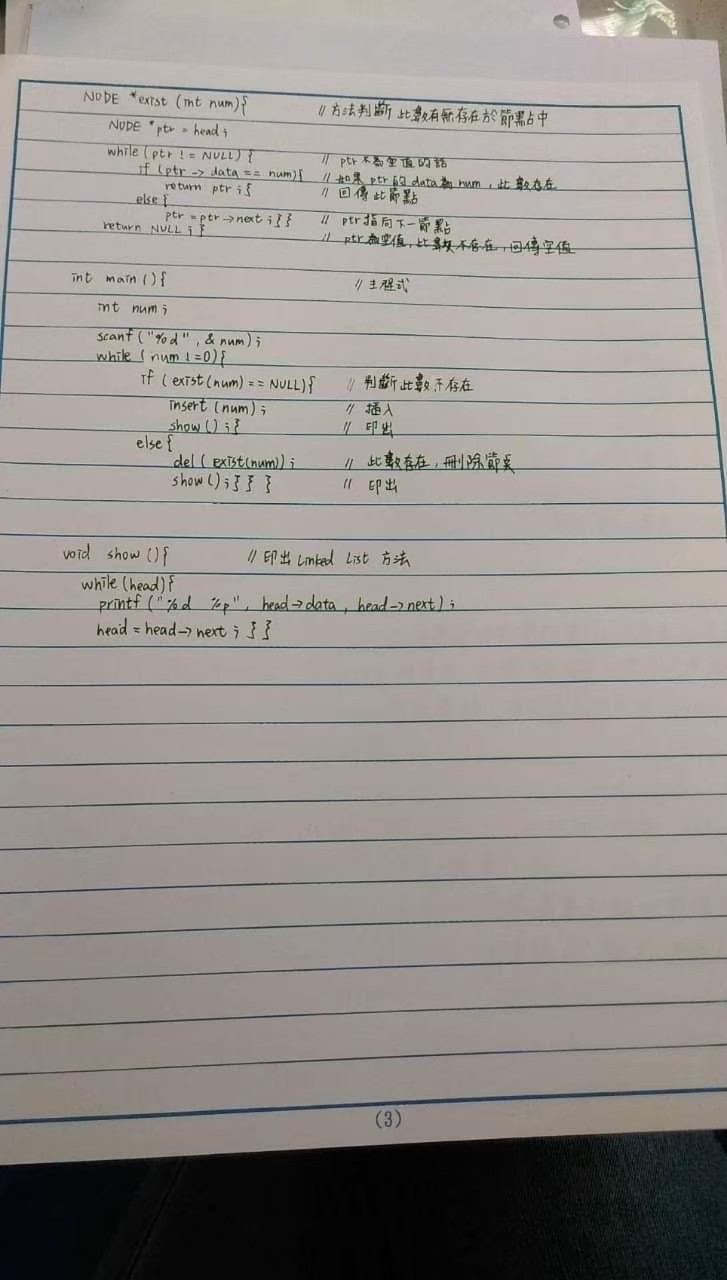 NODE *exist (int num){ // 方法判斷此數有無存在於節點中
NODE *ptr = head;
while (ptr != NULL) { // ptr 不為空值的話
if (ptr -> data == num){ // 如果 ptr 的 data 為 num, 此數存在
return ptr;{ // 回傳此節點
else{
ptr = ptr->next;}} // ptr 指向下一節點
return NULL;} // ptr 為空值, 此數不存在, 回傳空值
int main(){ // 主程式
int num;
scanf("%d", & num);
while ( num !=0){
if (exist(num) == NULL){ // 判斷此數不存在
insert (num); // 插入
show();} // 印出
else{
del ( exist(num)); // 此數存在, 刪除節點
show();}}} // 印出
void show (){ // 印出 Linked List 方法
while (head){
printf ("%d %p", head->data, head->next);
head = head->next;}}
(3)